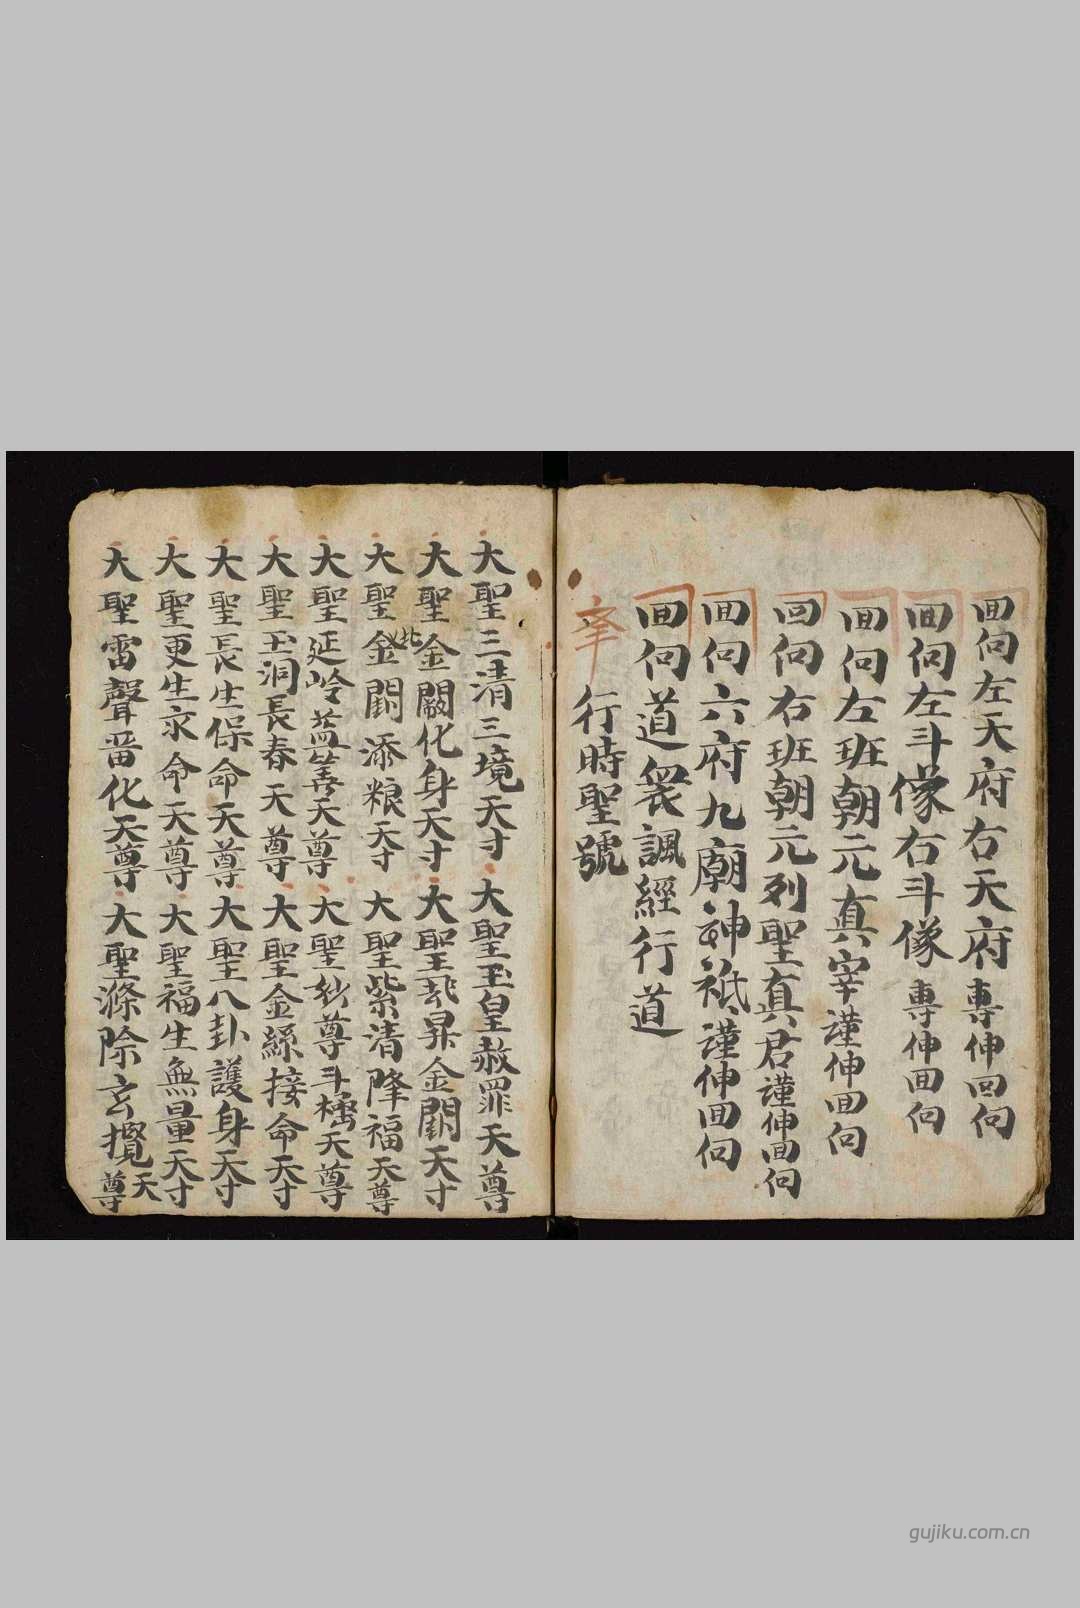 回向左天府右天府專伸回向
回向左斗像右斗像專伸回向
回向左班朝元真宰謹伸回向
回向右班朝元列聖真君謹伸回向
回向六府九廟神祇謹伸回向
回向道衆諷經行道
行時聖號
大聖三清三境天寸 大聖玉皇赦罪天尊
大聖金闕化身天寸 大聖昇金闕天寸
大聖金闕添粮天寸 大聖紫清降福天尊
大聖延岭益筭天尊 大聖妙尊斗樞天尊
大聖玉洞長春天尊 大聖金絲接命天寸
大聖長生保命天尊 大聖八卦護身天寸
大聖更生永命天尊 大聖福生無量天寸
大聖雷聲普化天尊 大聖滌除玄攬天尊
gujiku.com.cn